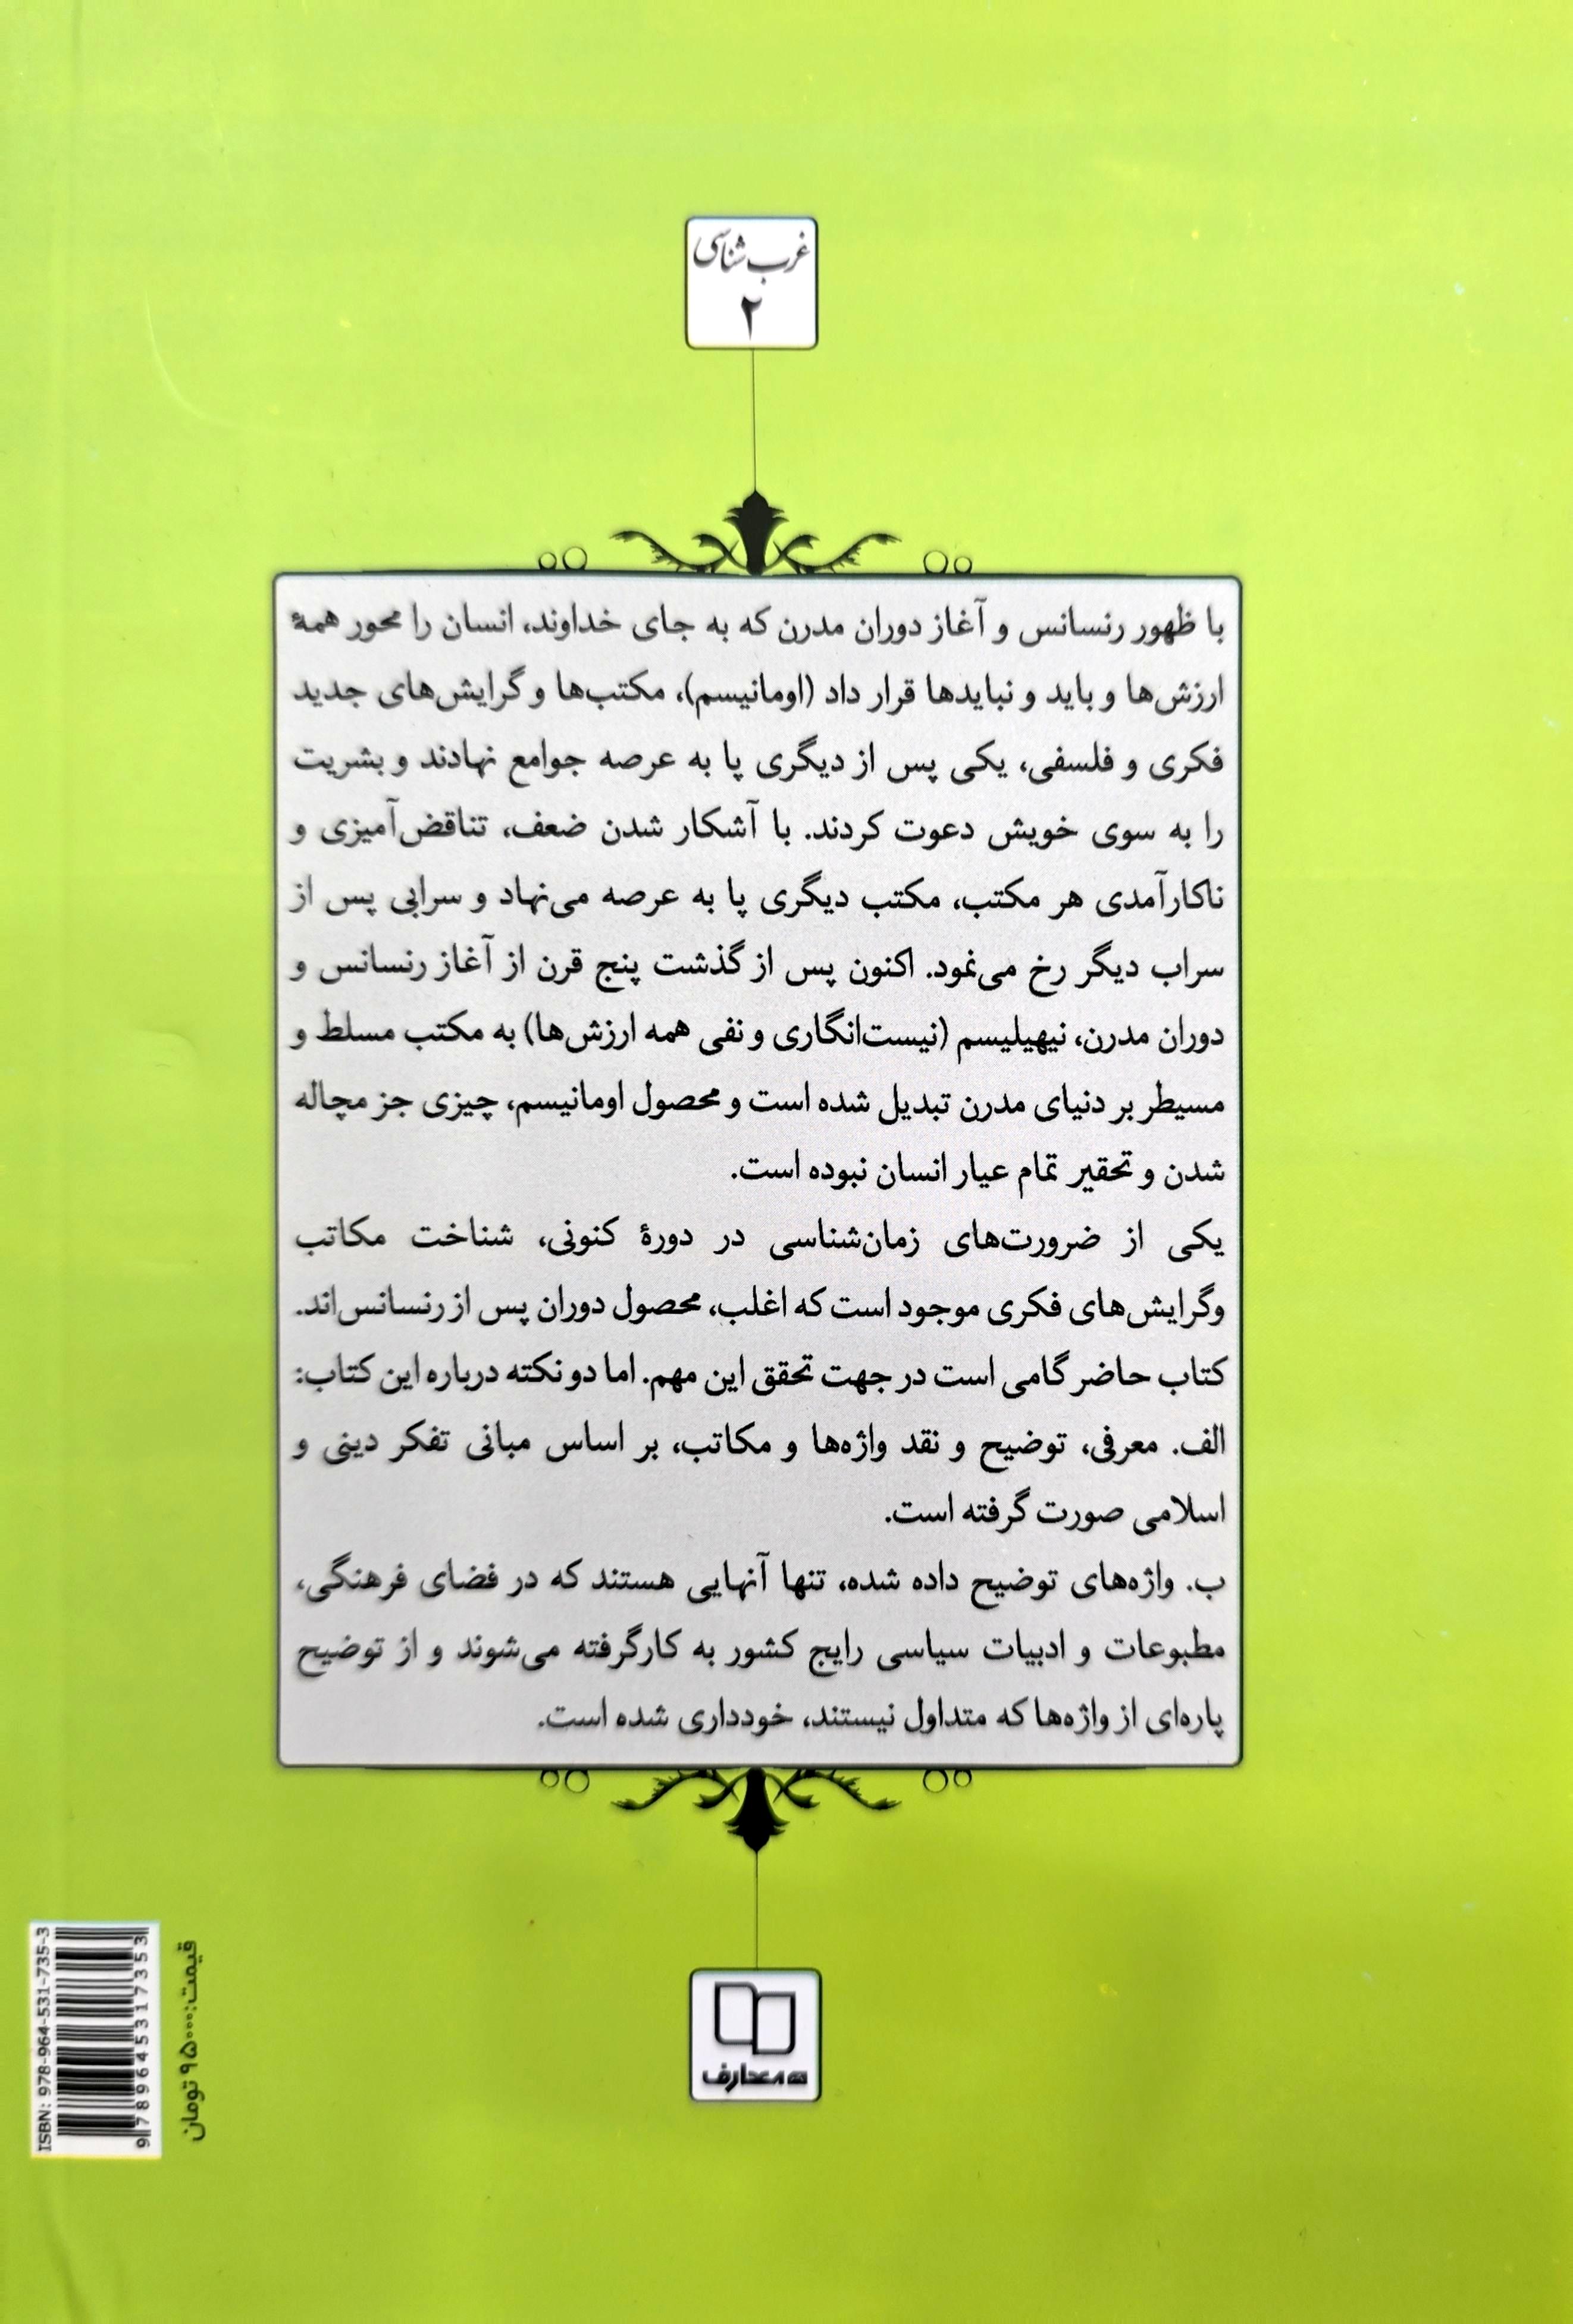 غرب‌شناسی
۲
با ظهور رنسانس و آغاز دوران مدرن که به جای خداوند، انسان را محور همهٔ
ارزش‌ها و باید و نبایدها قرار داد (اومانیسم)، مکتب‌ها و گرایش‌های جدید
فکری و فلسفی، یکی پس از دیگری پا به عرصه جوامع نهادند و بشریت
را به سوی خویش دعوت کردند. با آشکار شدن ضعف، تناقض‌آمیزی و
ناکارآمدی هر مکتب، مکتب دیگری پا به عرصه می‌نهاد و سرابی پس از
سراب دیگر رخ می‌نمود. اکنون پس از گذشت پنج قرن از آغاز رنسانس و
دوران مدرن، نیهیلیسم (نیست‌انگاری و نفی همه ارزش‌ها) به مکتب مسلط و
مسیطر بر دنیای مدرن تبدیل شده است و محصول اومانیسم، چیزی جز مچاله
شدن و تحقیر تمام عیار انسان نبوده است.
یکی از ضرورت‌های زمان‌شناسی در دورهٔ کنونی، شناخت مکاتب
وگرایش‌های فکری موجود است که اغلب، محصول دوران پس از رنسانس‌اند.
کتاب حاضر گامی است در جهت تحقق این مهم. اما دو نکته درباره این کتاب:
الف. معرفی، توضیح و نقد واژه‌ها و مکاتب، بر اساس مبانی تفکر دینی و
اسلامی صورت گرفته است.
ب. واژه‌های توضیح داده شده، تنها آنهایی هستند که در فضای فرهنگی،
مطبوعات و ادبیات سیاسی رایج کشور به کارگرفته می‌شوند و از توضیح
پاره‌ای از واژه‌ها که متداول نیستند، خودداری شده است.
معارف
قیمت: ۹۵۰۰۰ تومان
ISBN: 978-964-531-735-3
9789645317353